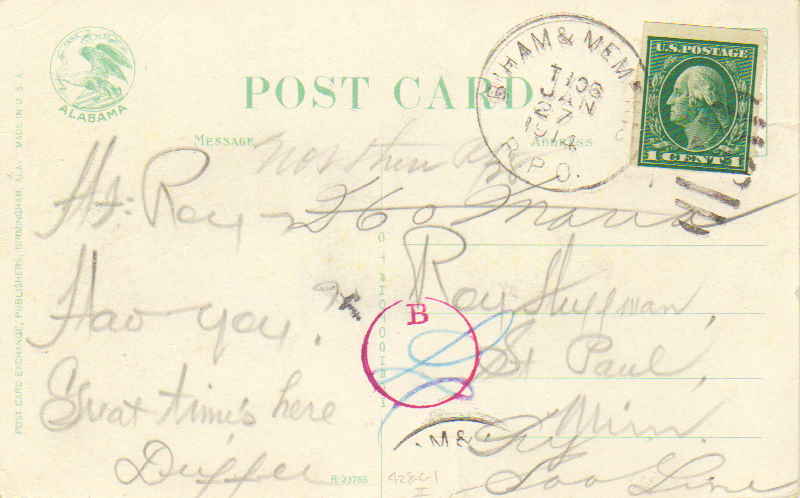 ALABAMA
POST CARD
B'HAM & MEM
T 106
JAN
27
1914
R.P.O.
U.S. POSTAGE
1 CENT 1
MESSAGE
ADDRESS
Northern
Hi: Roy 260
Roy Huffman,
Hao yoy.
St Paul,
Minn.
Great times here
Duffee
Ry
Soo Line
B
M &
R-21785
POST CARD EXCHANGE, PUBLISHERS, BIRMINGHAM, ALA. MADE IN U.S.A.